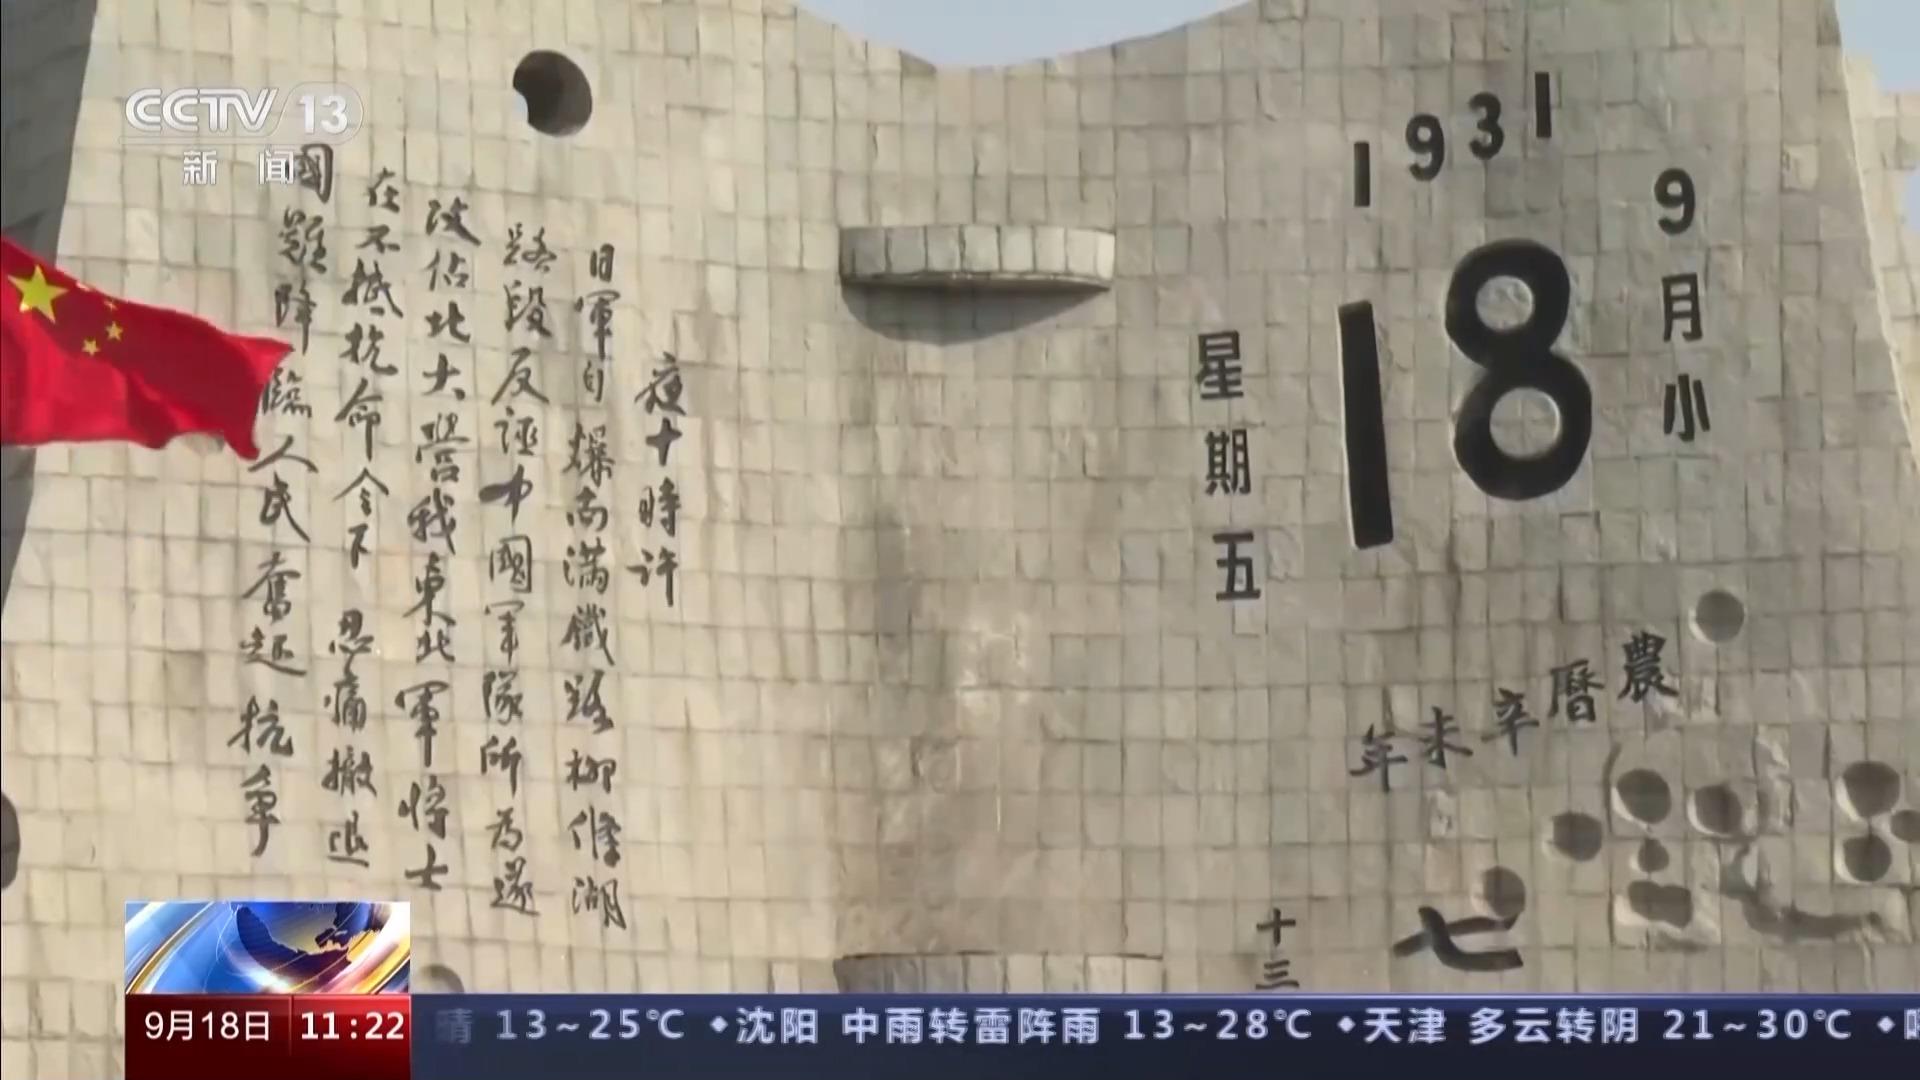 CCTV 13
新闻
1931
9月小
18
星期五
農曆辛未年
七
十三
夜十時許
日軍自爆南满鐵路柳條湖
路段反誣中國軍隊所為遂
攻佔北大營我東北軍將士
在不抵抗命令下忍痛撤退
國難降臨人民奮起抗争
9月18日 11:22
晴 13~25℃ 沈阳 中雨转雷阵雨 13~28℃ 天津 多云转阴 21~30℃